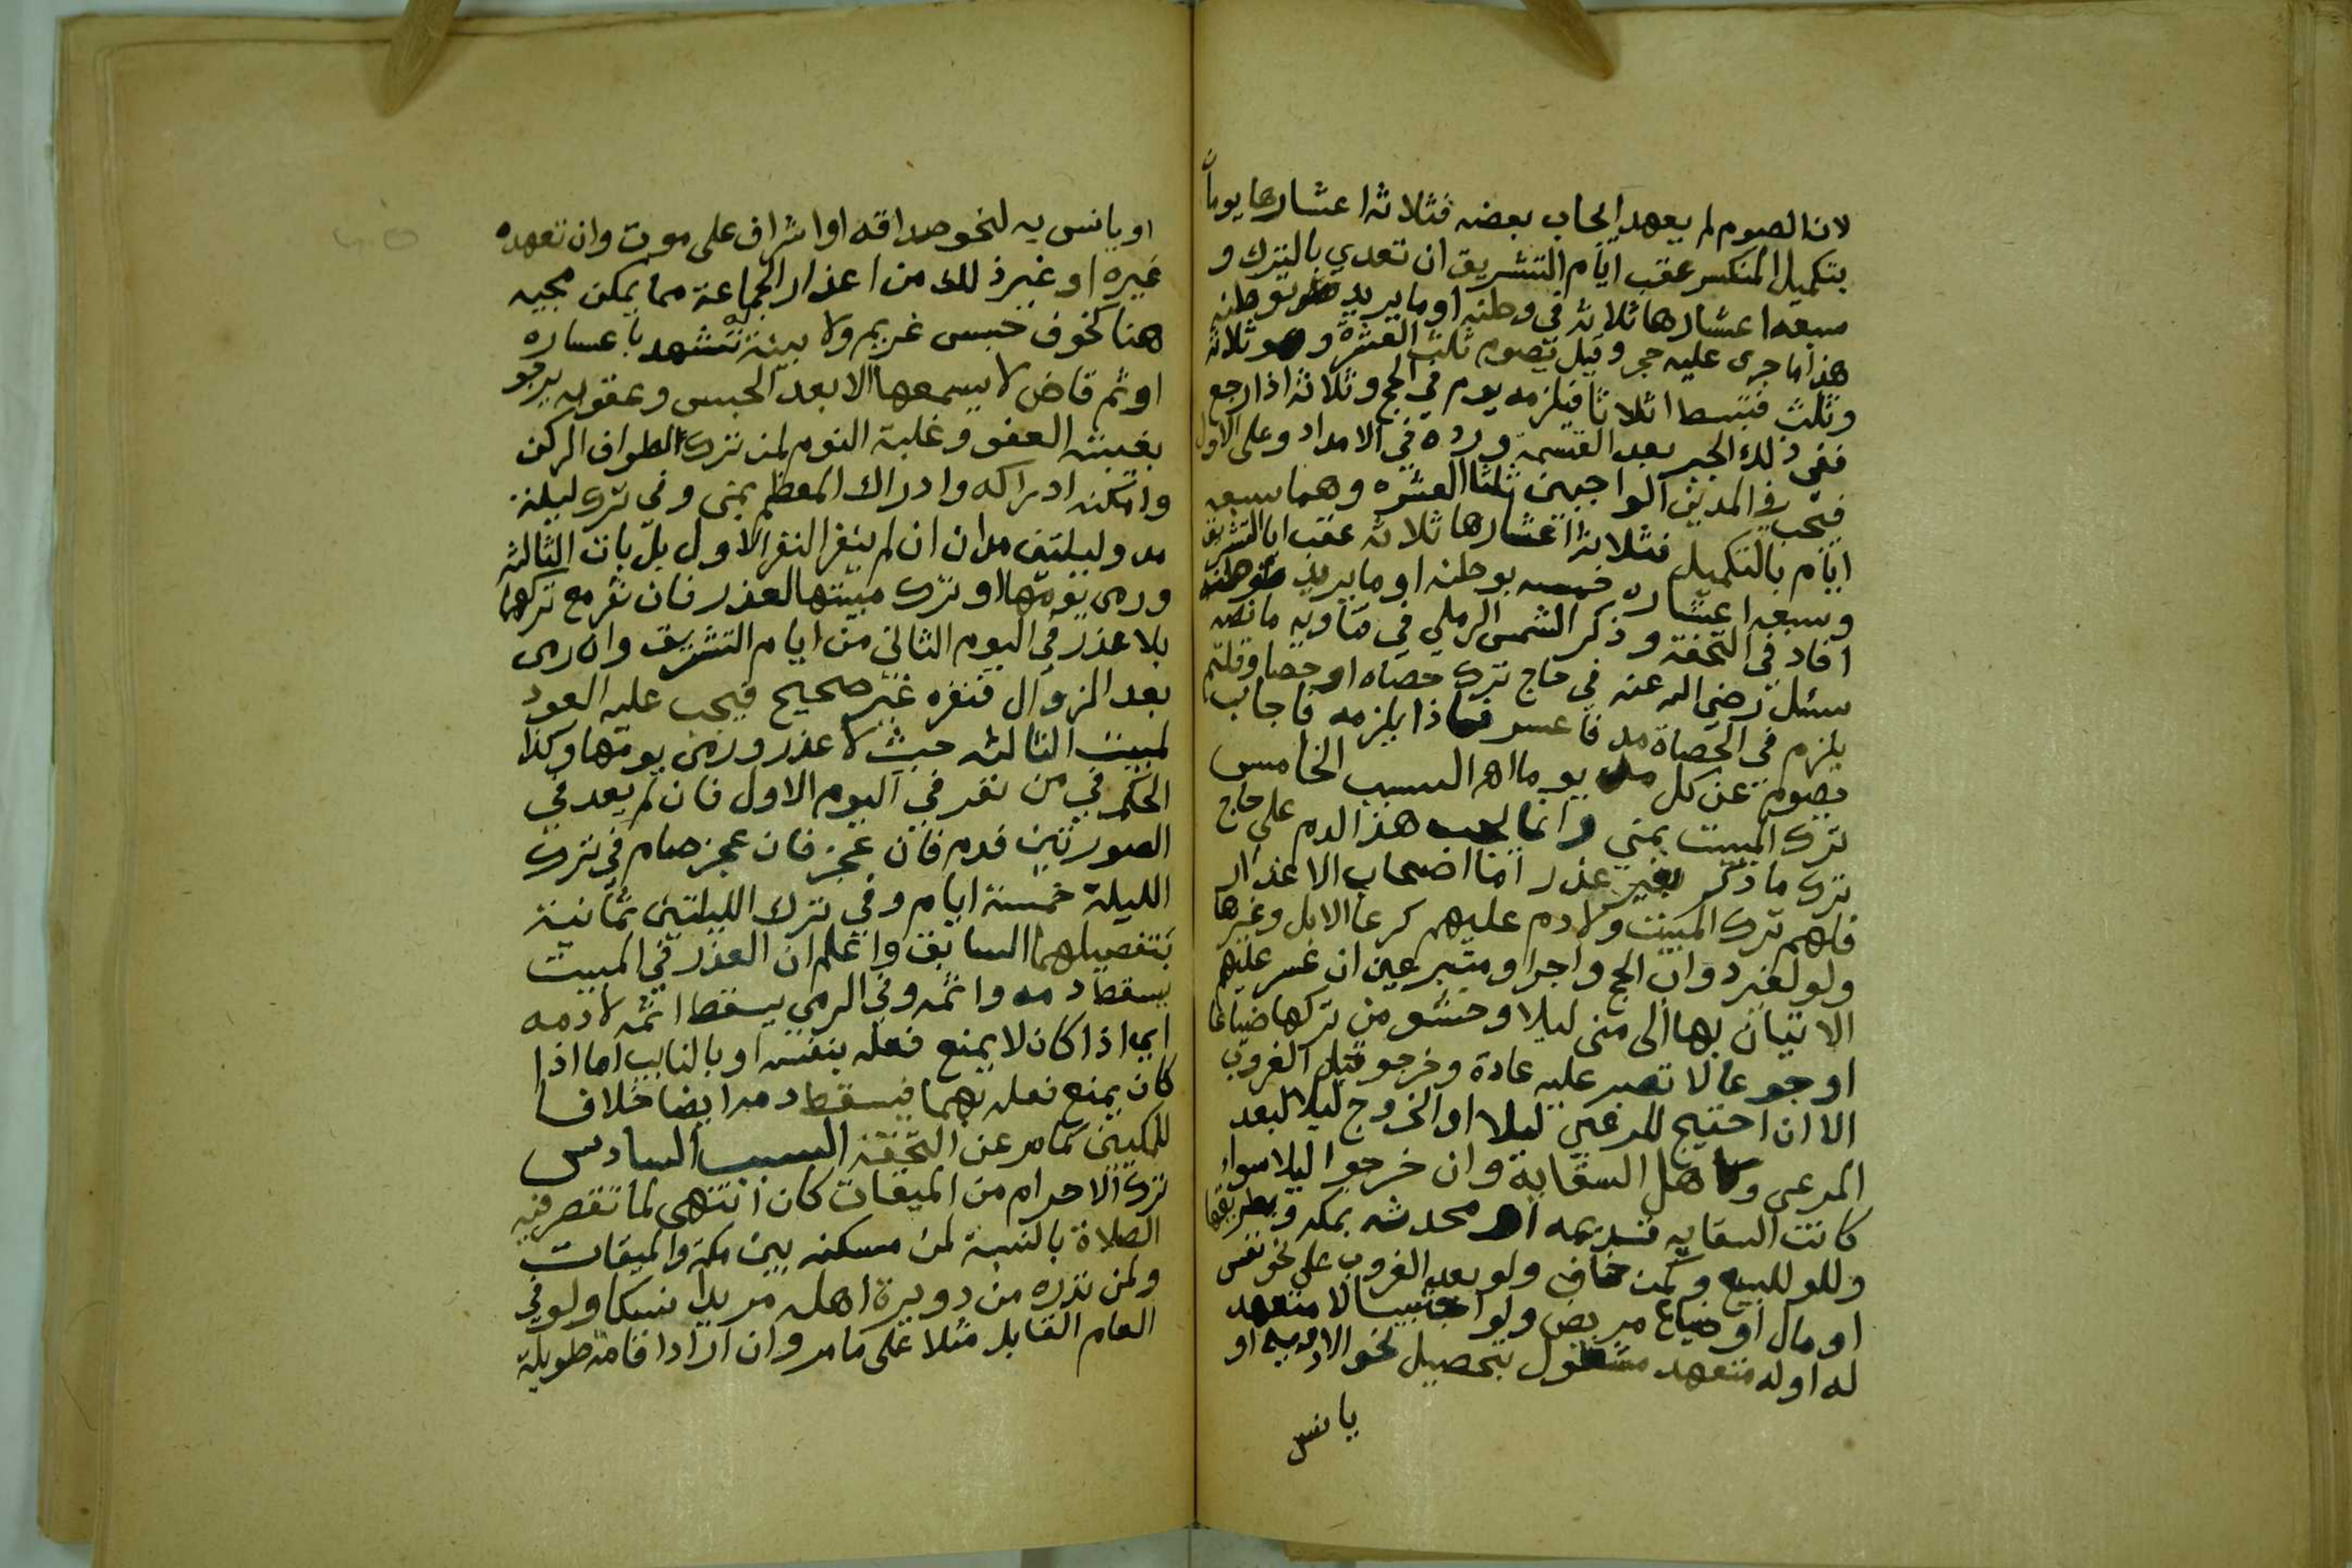 لان الصوم لم يعهد ايجاب بعضه فثلاثة اعشارها يوما
بتكميل المنكسر عقب ايام التشريق ان تعدي بالترك و
سبعة اعشارها ثلاثة في وطنه او ما يريد توطنه
هذا ما جرى عليه حجر وقيل يصوم ثلث العشرة وهو ثلاثة
وثلث فتبسط اثلاثا فيلزمه يوم في الحج وثلاثة اذا رجع
ففي ذلك الجبر بعد القسمة ورده في الامداد وعلى الاول
فيجب في المدين الواجبين ثلثا العشره وهما سبعه
ايام بالتكميل فثلاثة اعشارها ثلاثه عقب ايام التشريق
وسبعة اعشاره خمسه بوطنه او ما يريد توطنه
افاد في التحفة وذكر الشمس الرملي في فتاويه ما نصه
سئل رضي الله عنه في حاج ترك حصاه او حصا وقلتم
يلزم في الحصاة مد فاعسر فماذا يلزمه فاجاب
يصوم عن كل مد يوما اهـ السبب الخامس
ترك المبيت بمنى وانما يجب هذا الدم على حاج
ترك ما ذكر بغير عذر اما اصحاب الاعذار
فلهم ترك المبيت ولا دم عليهم كرعا الابل وغيرها
ولو لغير دواب الحج واجرا ومتبرعين ان عسر عليهم
الاتيان بها الى منى ليلا وخشو من تركها ضياعا
او جوعا لا تصبر عليه عادة وخرجو قبل الغروب
الا ان احتيج للرعي ليلا او الخروج ليلا لبعد
المرعى وكاهل السقاية وان خرجوا ليلا سواء
كانت السقايه قديمه او محدثه بمكه وبطريقها
وللو للبيع وكمن خاف ولو بعد الغروب على نحو نفس
او مال او ضياع مريض ولو اجنبيا لا متعهد
له او له متعهد مشغول بتحصيل نحو الادويه او
يانس
او يانس به لنحو صداقه او اشراف على موت وان تعهده
غيره او غير ذلك من اعذار الجماعة مما يمكن مجيه
هنا كخوف حبس غريم ولا بينة تشهد باعساره
او ثم قاض لا يسمعها الا بعد الحبس وعقوبه يرجو
بغيبته العفو وغلبة النوم لمن ترك الطواف الركن
وامكنه ادراكه وادراك المعظم بمنى وفي ترك ليلة
مد وليلتين مدان ان لم ينفر النفر الاول بل بات الثالثه
ورمى يومها او ترك مبيتها لعذر فان نفر مع تركها
بلا عذر في اليوم الثاني من ايام التشريق وان رمى
بعد الزوال فنفره غير صحيح فيجب عليه العود
لمبيت الثالثه حيث لا عذر ورمى يومها وكذا
الحكم في من نفر في اليوم الاول فان لم يعد في
الصورتين فدم فان عجز فان عجز صام في ترك
الليلة خمسة ايام وفي ترك الليلتين ثمانية
بتفصيلهما السابق واعلم ان العذر في المبيت
يسقط دمه واثمه وفي الرمي يسقط اثمه لا دمه
اي اذا كان لا يمنع فعله بنفسه او بالنايب اما اذا
كان يمنع فعله بهما فيسقط دمه ايضا خلافا
للمكيين كما مر عن التحفة السبب السادس
ترك الاحرام من الميقات كان انتهى لما تقصر فيه
الصلاة بالنسبة لمن مسكنه بين مكة والميقات
ولمن نذره من دويرة اهله مريدا نسكا ولو في
العام القابل مثلا على ما مر وان اراد اقامة طويلة